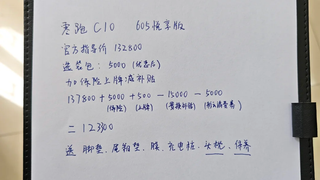 零跑 C10 605悦享版
官方指导价 132800
选装包: 5000 (优惠后)
加保险上牌减补贴
137800 + 5000 + 500 - 15000 - 5000
(保险) (上牌) (置换补贴)
= 123300
送 脚垫、尾箱垫、膜、充电桩、女枕、保养